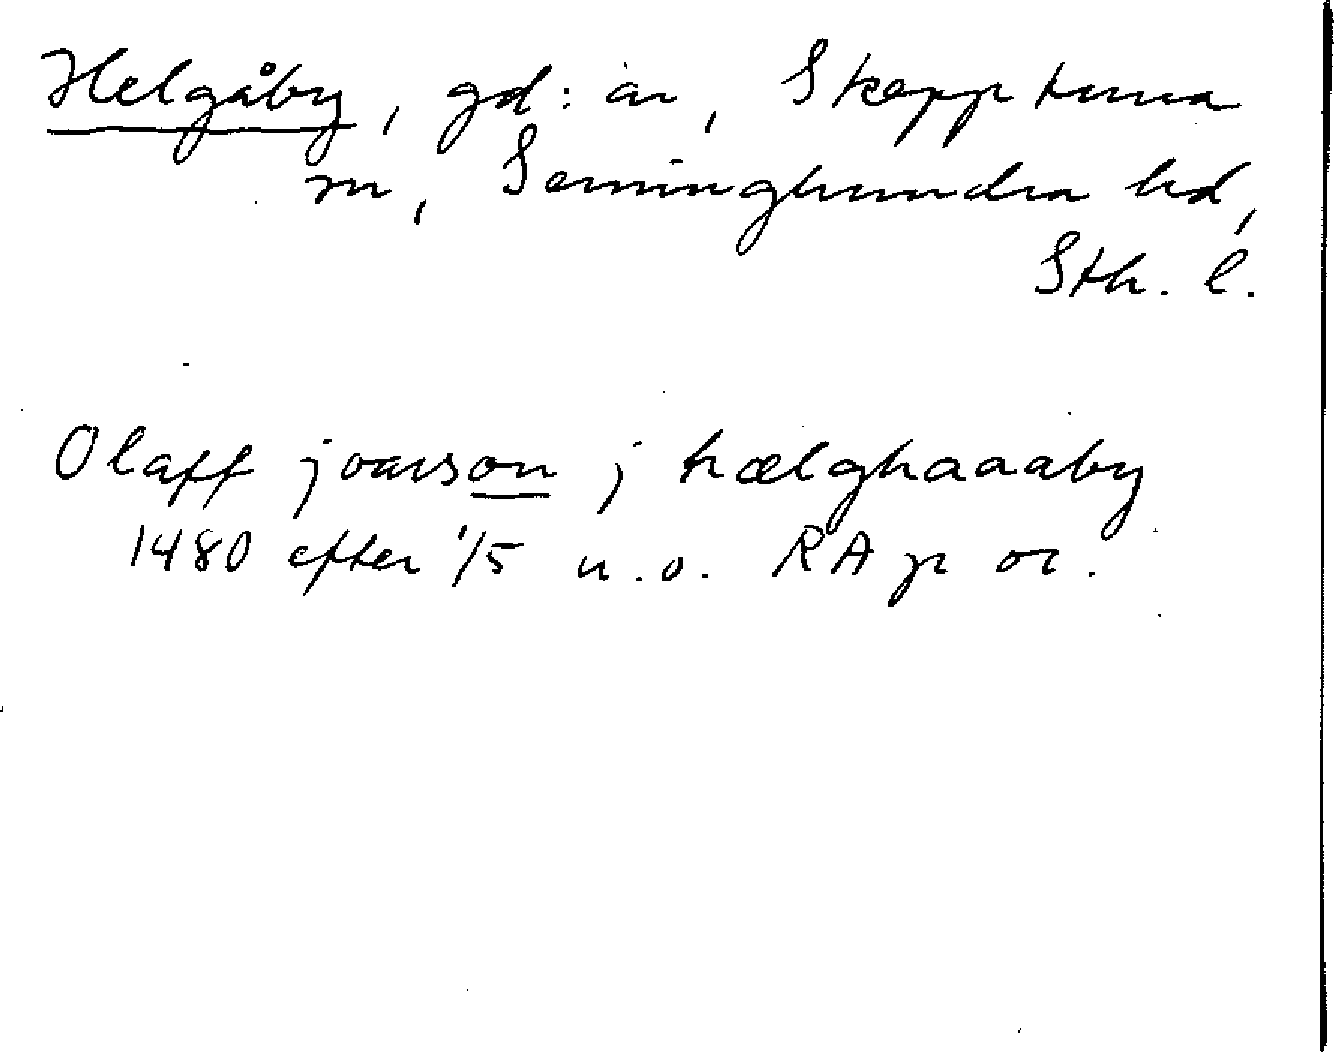 Helgåby, gd:ar, Skepptuna
sn, Seminghundra hd,
Sth. l.
Olaff joarsson j hælghaaaby
1480 efter 1/5 u.o. RA p or.